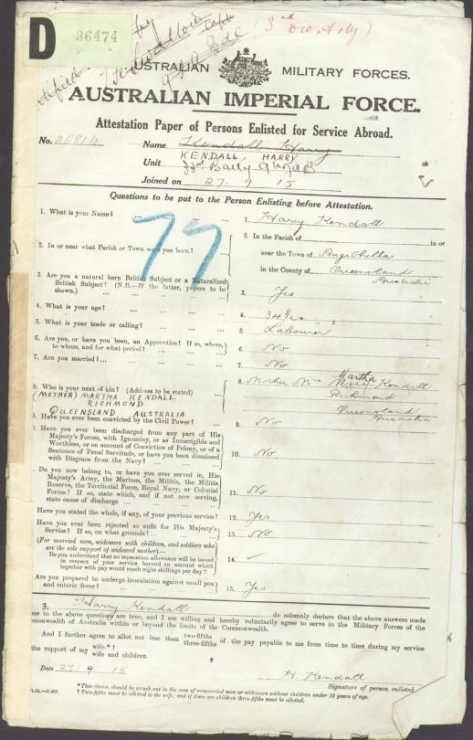 D
36474
AUSTRALIAN MILITARY FORCES.
AUSTRALIAN IMPERIAL FORCE.
Attestation Paper of Persons Enlisted for Service Abroad.
No. Name Kendall Harry
KENDALL, HARRY
Unit
Joined on 27 9 15
Questions to be put to the Person Enlisting before Attestation.
77
1. What is your Name? ... 1. Harry Kendall
2. In or near what Parish or Town were you born? ... 2. In the Parish of in or
near the Town of
in the County of Queensland
Australia
3. Are you a natural born British Subject or a Naturalized
British Subject? (N.B.—If the latter, papers to be
shown.) ... 3. Yes
4. What is your age? ... 4. 34
5. What is your trade or calling? ... 5. Labourer
6. Are you, or have you been, an Apprentice? If so, where,
to whom, and for what period? ... 6. No
7. Are you married? ... 7. No
8. Who is your next of kin? (Address to be stated) 8. Mother Mrs Martha Kendall
(MOTHER) MARTHA KENDALL Richmond
RICHMOND
QUEENSLAND AUSTRALIA Queensland Australia
Have you ever been convicted by the Civil Power? ... 9. No
Have you ever been discharged from any part of His
Majesty's Forces, with Ignominy, or as Incorrigible and
Worthless, or on account of Conviction of Felony, or of a
Sentence of Penal Servitude, or have you been dismissed
with Disgrace from the Navy? ... 10. No
Do you now belong to, or have you ever served in, His
Majesty's Army, the Marines, the Militia, the Militia
Reserve, the Territorial Force, Royal Navy, or Colonial
Forces? If so, state which, and if not now serving,
state cause of discharge ... 11. No
Have you stated the whole, if any, of your previous service? 12. Yes
Have you ever been rejected as unfit for His Majesty's
Service? If so, on what grounds? ... 13. No
(For married men, widowers with children, and soldiers who
are the sole support of widowed mother)—
Do you understand that no separation allowance will be issued
in respect of your service beyond an amount which
together with pay would reach eight shillings per day? 14. —
Are you prepared to undergo inoculation against small pox
and enteric fever? ... 15. Yes
I, Harry Kendall do solemnly declare that the above answers made
me to the above questions are true, and I am willing and hereby voluntarily agree to serve in the Military Forces of the
monwealth of Australia within or beyond the limits of the Commonwealth.
And I further agree to allot not less than two-fifths
three-fifths of the pay payable to me from time to time during my service
the support of my wife.*†
wife and children.
Date 27. 9. 15 H. Kendall
Signature of person enlisted.
*This clause should be struck out in the case of unmarried men or widowers without children under 18 years of age.
† Two-fifths must be allotted to the wife, and if there are children three-fifths must be allotted.